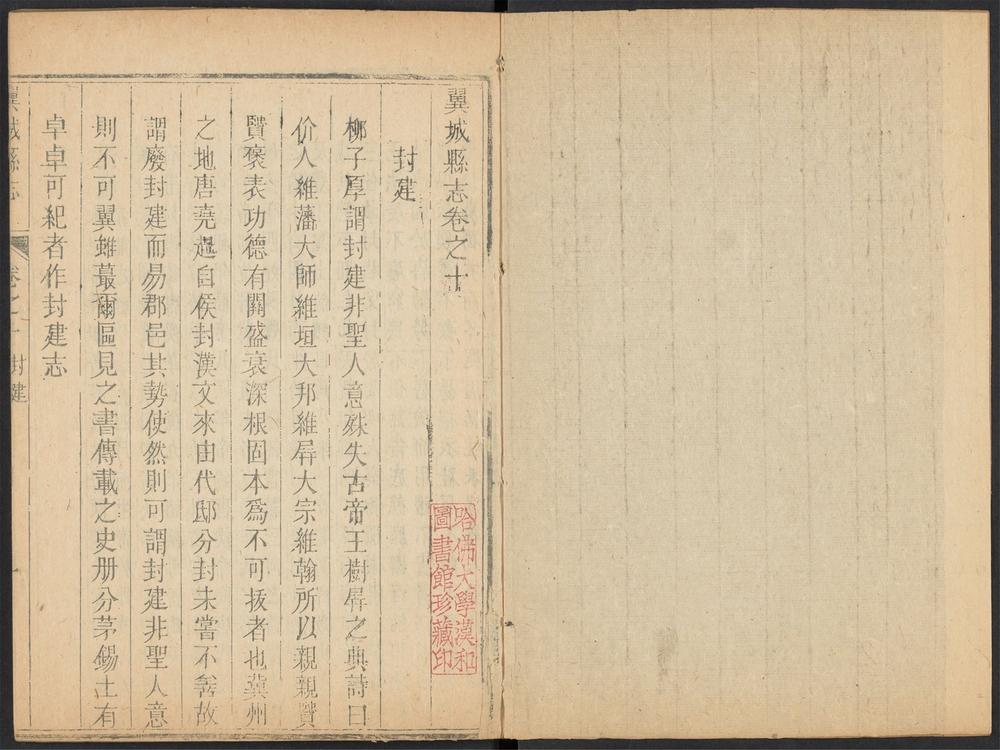 翼城縣志卷之十
封建
柳子厚謂封建非聖人意殊失古帝王樹屏之典詩曰
价人維藩大師維垣大邦維屏大宗維翰所以親親賢
賢褒表功德有關盛衰深根固本爲不可拔者也冀州
之地唐堯起自侯封漢文來由代邸分封未嘗不善故
謂廢封建而易郡邑其勢使然則可謂封建非聖人意
則不可翼雖蕞爾區見之書傳載之史册分茅錫土有
卓卓可紀者作封建志
翼城縣志
卷之十
封建
哈佛大學漢和
圖書館珍藏印